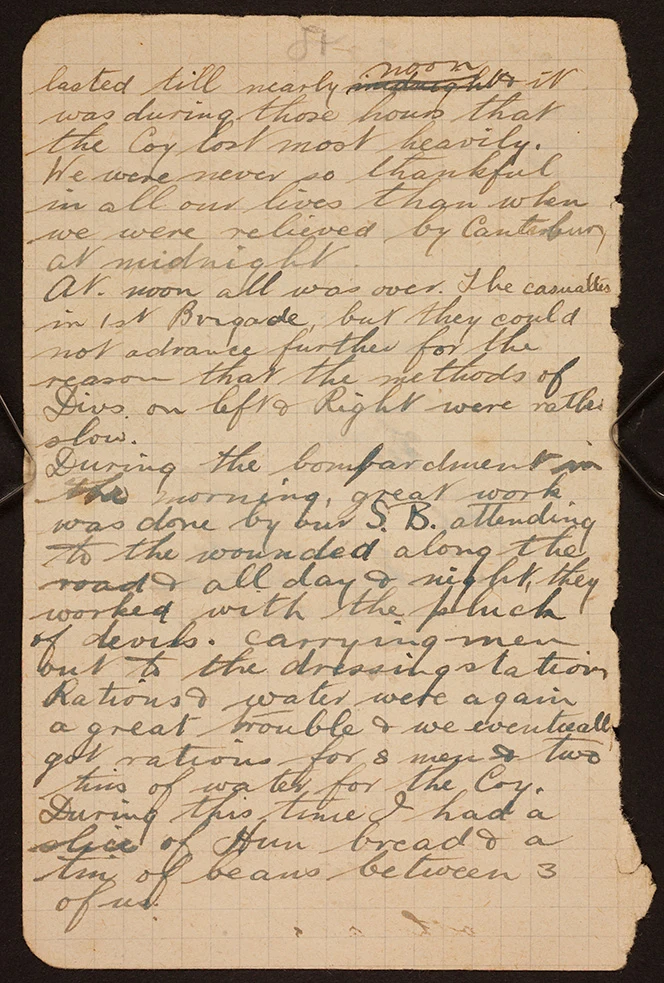 lasted till nearly noon midnight & it
was during those hours that
the Coy lost most heavily.
We were never so thankful
in all our lives than when
we were relieved by Canterbury
at midnight.
At noon all was over. The casualties
in 1st Brigade, but they could
not advance further for the
reason that the methods of
Divs. on left & Right were rather
slow.
During the bombardment in
the morning, great work
was done by our S. B. attending
to the wounded along the
road & all day & night, they
worked with the pluck
of devils. carrying men
out to the dressing station
Rations & water were again
a great trouble & we eventually
got rations for 8 men & two
tins of water for the Coy.
During this time I had a
slice of Hun bread & a
tin of beans between 3
of us.